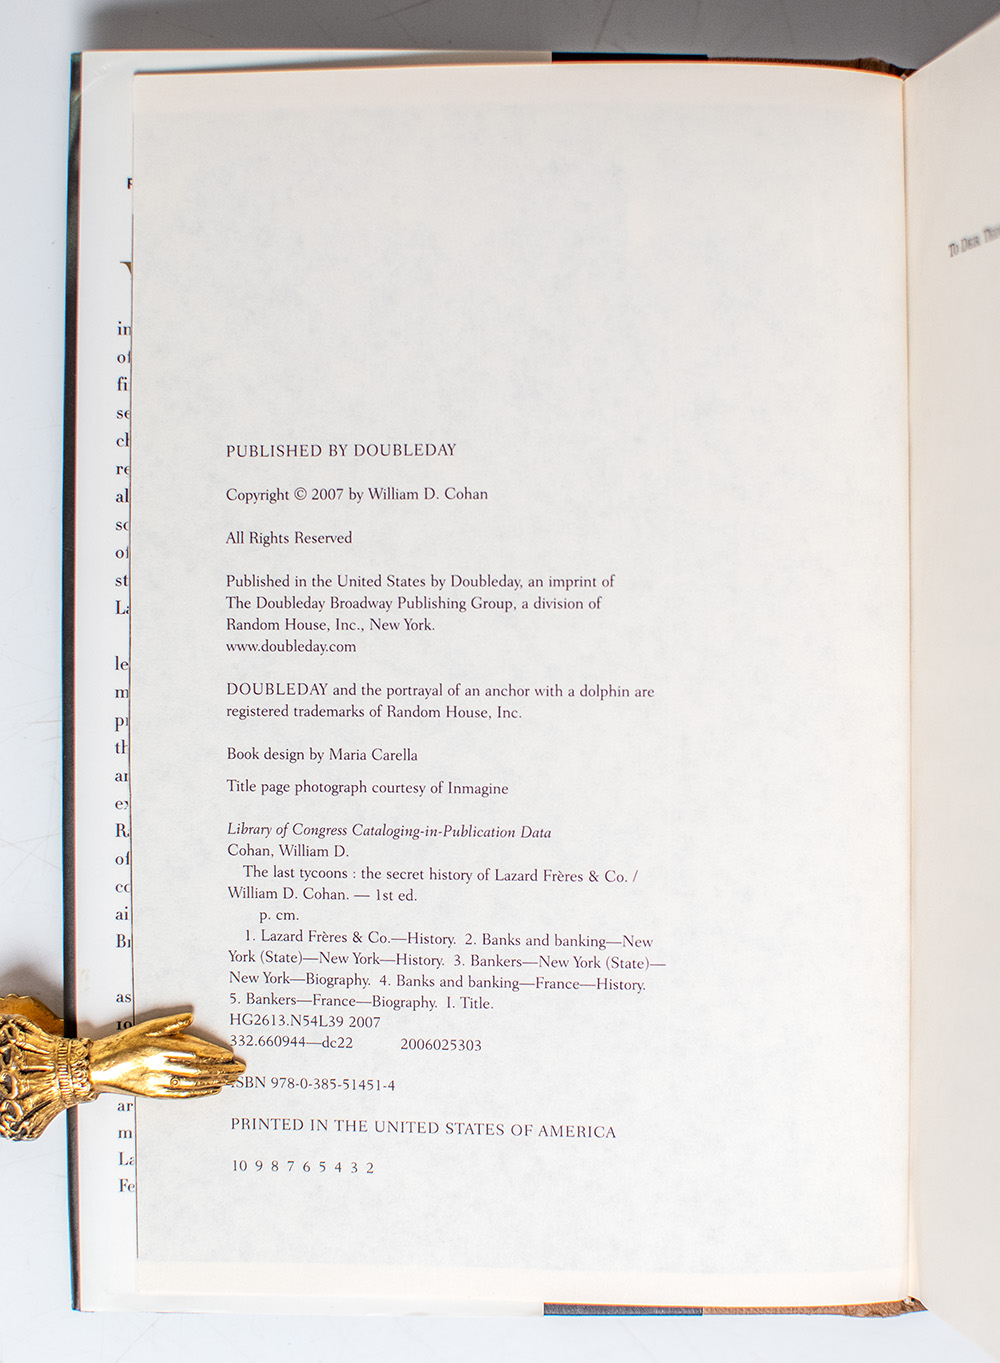 PUBLISHED BY DOUBLEDAY
Copyright © 2007 by William D. Cohan
All Rights Reserved
Published in the United States by Doubleday, an imprint of
The Doubleday Broadway Publishing Group, a division of
Random House, Inc., New York.
www.doubleday.com
DOUBLEDAY and the portrayal of an anchor with a dolphin are
registered trademarks of Random House, Inc.
Book design by Maria Carella
Title page photograph courtesy of Inmagine
Library of Congress Cataloging-in-Publication Data
Cohan, William D.
The last tycoons : the secret history of Lazard Frères & Co. /
William D. Cohan. — 1st ed.
p. cm.
1. Lazard Frères & Co.—History. 2. Banks and banking—New
York (State)—New York—History. 3. Bankers—New York (State)—
New York—Biography. 4. Banks and banking—France—History.
5. Bankers—France—Biography. I. Title.
HG2613.N54L39 2007
332.660944—dc22 2006025303
ISBN 978-0-385-51451-4
PRINTED IN THE UNITED STATES OF AMERICA
10 9 8 7 6 5 4 3 2